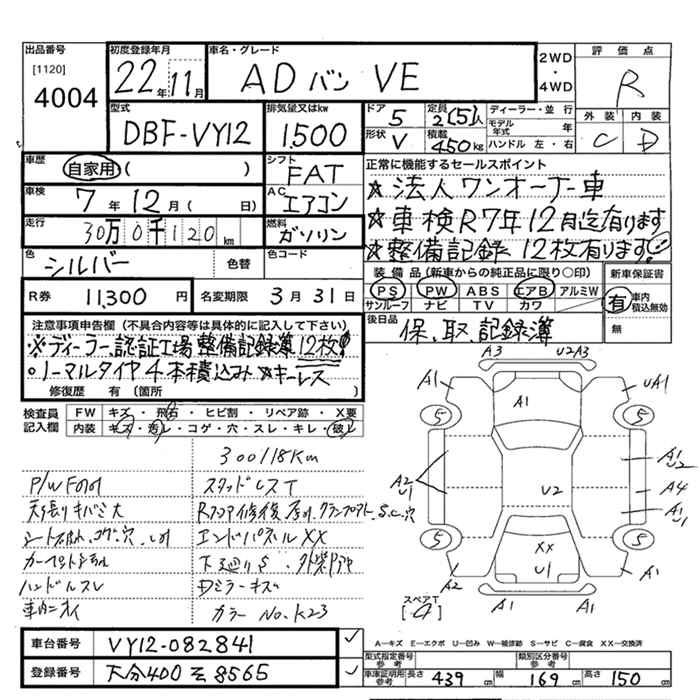 出品番号
[1120]
4004
初度登録年月
22年11月
車名・グレード
ADバン VE
2WD・4WD
評価点
R
外装 内装
C D
型式
DBF-VY12
排気量又はkw
1500
ドア 5
定員 2(5)人
形状 V
積載 450kg
ディーラー・並行
モデル年式 年
ハンドル 左・右
車歴
自家用 ( )
シフト
FAT
車検
7年12月( 日)
AC
エアコン
走行
30万0千120km
燃料
ガソリン
色
シルバー
色替
色コード
正常に機能するセールスポイント
☆法人ワンオーナー車
☆車検R7年12月迄有ります
☆整備記録 12枚有ります!
装備品(新車からの純正品に限り○印)
PS PW ABS エアB アルミW
サンルーフ ナビ TV カワ
新車保証書
有 車内積込無効
無
R券 11,300円
名変期限 3月31日
後日品
保、取、記録簿
注意事項申告欄(不具合内容等は具体的に記入して下さい)
※ディーラー、認証工場 整備記録簿 12枚!
・ノーマルタイヤ4本積込み ※キーレス
修復歴 有(箇所 )
検査員記入欄
FW キズ・飛石・ヒビ割・リペア跡・X要
内装 キズ・汚レ・コゲ・穴・スレ・キレ・破レ
300118Km
P/W
スタッドレスT
天張りキバミ大
Rフロア修復
S.C.穴
エンドパネルXX
下廻りS
ハンドルスレ
Dミラーキズ
車内ニオイ
カラーNo.K23
A3 U2A3
A1 A1 UA1
5 5
A2 U1
U2
A1 U2
A4
A1 U1
5 5
XX
U1
A2 A1 A1 A1
スペアT
[-4]
車台番号
VY12-082841
登録番号
大分400そ8565
A-キズ E-エクボ U-凹み W-被修跡 S-サビ C-腐食 XX-交換済
型式指定番号 参考
類別区分番号 参考
車庫証明用 参考
長さ 439cm 幅 169cm 高さ 150cm